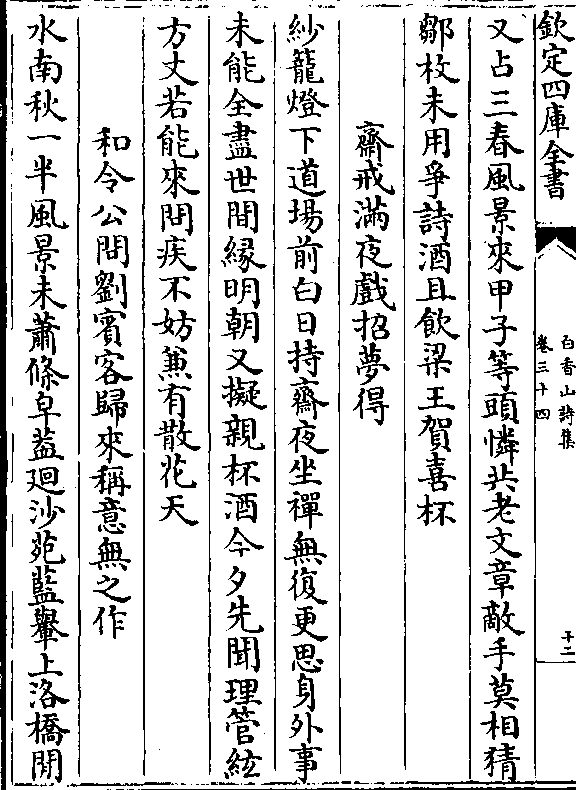 欽定四庫全書
白香山詩集
卷三十四
十二
又占三春風景來甲子等頭憐共老文章敵手莫相猜
鄒枚未用爭詩酒且飲梁王賀喜杯
齋戒滿夜戲招夢得
紗籠燈下道場前白日持齋夜坐禪無復更思身外事
未能全盡世間緣明朝又擬親杯酒今夕先聞理管絃
方丈若能來問疾不妨兼有散花天
和令公問劉賓客歸來稱意無之作
水南秋一半風景未蕭條皁葢廻沙苑藍轝上洛橋閒